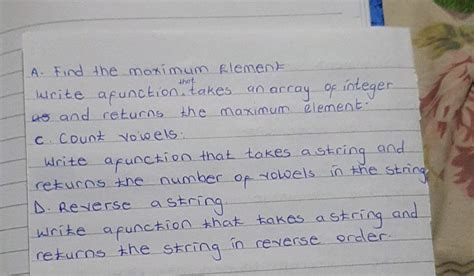 A. Find the maximum Element
Write a function that takes an array of integer
and returns the maximum element.
C. Count vowels.
Write a function that takes a string and
returns the number of vowels in the string
D. Reverse a string.
Write a function that takes a string and
returns the string in reverse order.